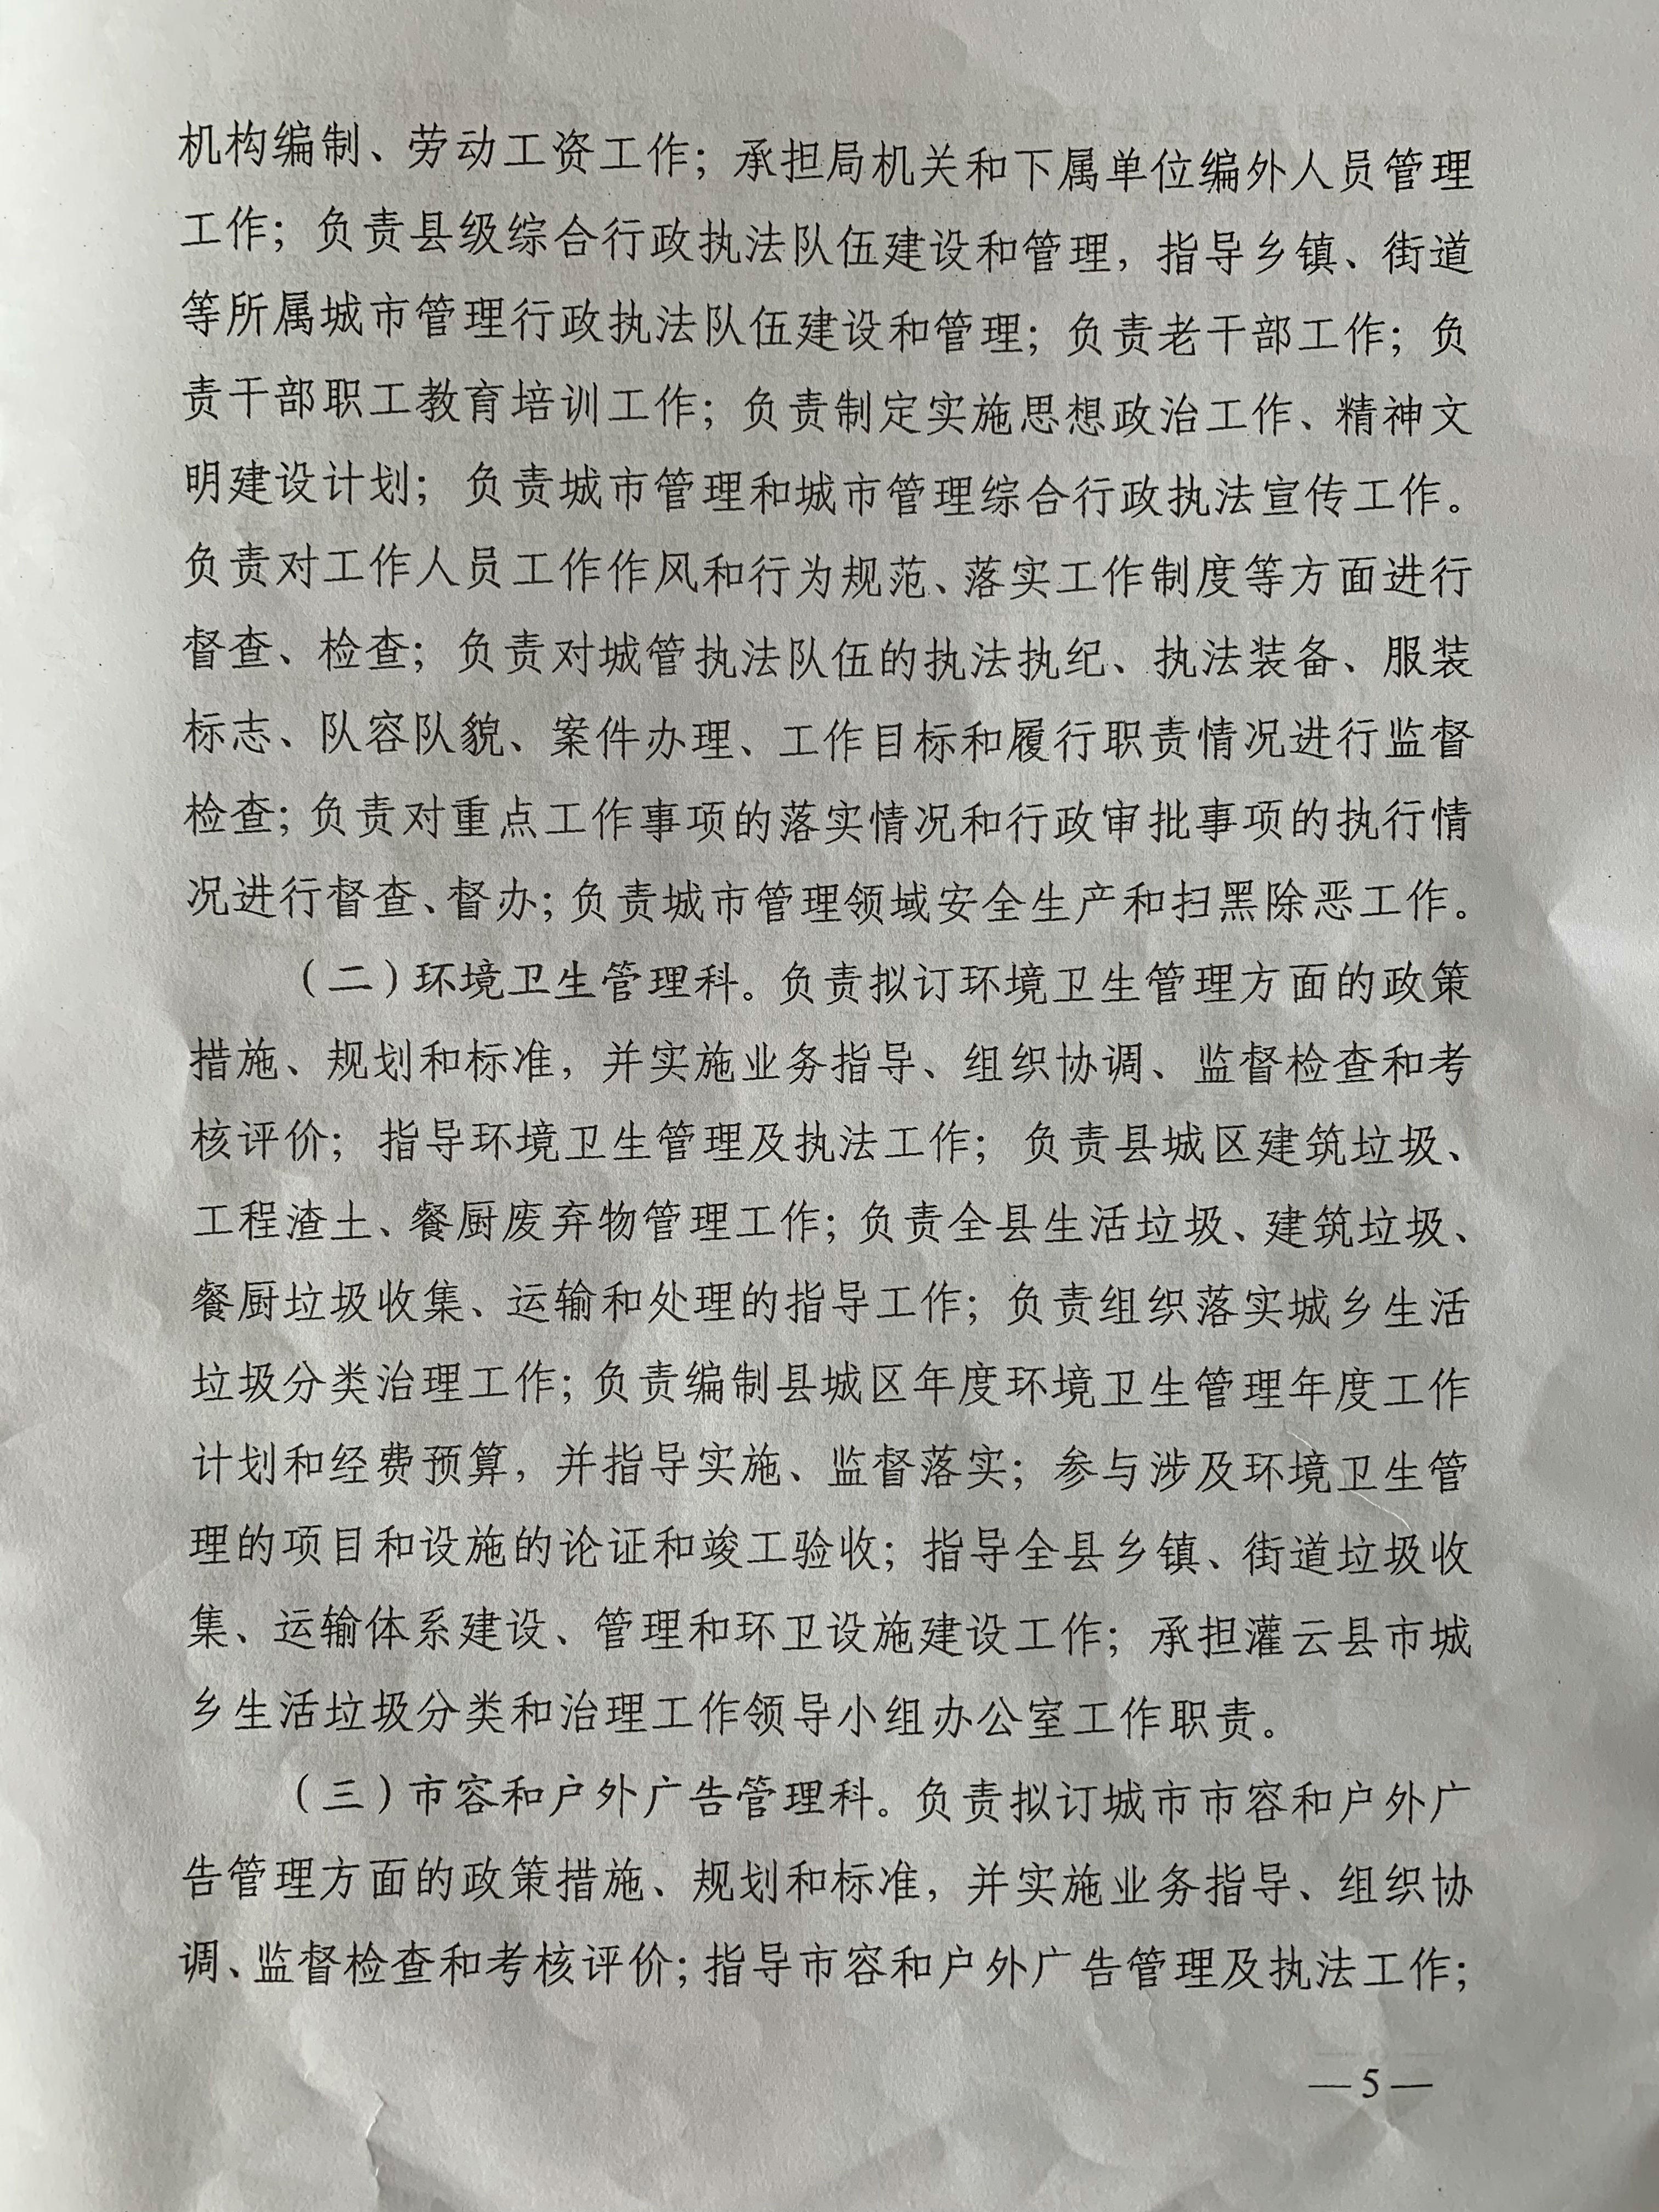 机构编制、劳动工资工作；承担局机关和下属单位编外人员管理
工作；负责县级综合行政执法队伍建设和管理，指导乡镇、街道
等所属城市管理行政执法队伍建设和管理；负责老干部工作；负
责干部职工教育培训工作；负责制定实施思想政治工作、精神文
明建设计划；负责城市管理和城市管理综合行政执法宣传工作。
负责对工作人员工作作风和行为规范、落实工作制度等方面进行
督查、检查；负责对城管执法队伍的执法执纪、执法装备、服装
标志、队容队貌、案件办理、工作目标和履行职责情况进行监督
检查；负责对重点工作事项的落实情况和行政审批事项的执行情
况进行督查、督办；负责城市管理领域安全生产和扫黑除恶工作。
（二）环境卫生管理科。负责拟订环境卫生管理方面的政策
措施、规划和标准，并实施业务指导、组织协调、监督检查和考
核评价；指导环境卫生管理及执法工作；负责县城区建筑垃圾、
工程渣土、餐厨废弃物管理工作；负责全县生活垃圾、建筑垃圾、
餐厨垃圾收集、运输和处理的指导工作；负责组织落实城乡生活
垃圾分类治理工作；负责编制县城区年度环境卫生管理年度工作
计划和经费预算，并指导实施、监督落实；参与涉及环境卫生管
理的项目和设施的论证和竣工验收；指导全县乡镇、街道垃圾收
集、运输体系建设、管理和环卫设施建设工作；承担灌云县市城
乡生活垃圾分类和治理工作领导小组办公室工作职责。
（三）市容和户外广告管理科。负责拟订城市市容和户外广
告管理方面的政策措施、规划和标准，并实施业务指导、组织协
调、监督检查和考核评价；指导市容和户外广告管理及执法工作；
—5—